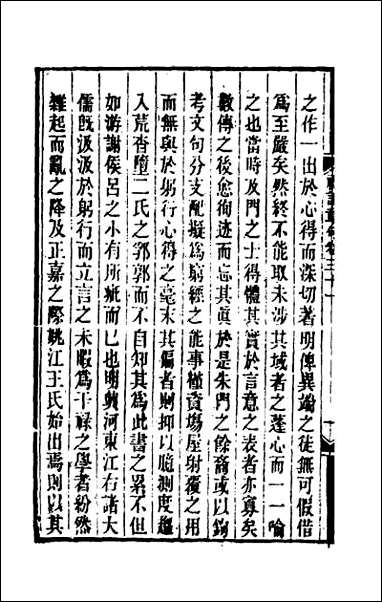 禮記章句卷三十一
之作一出於心得而深切著明俾異端之徒無可假借
爲至嚴矣然終不能取未涉其域者之蓬心而一一喻
之也當時及門之士得體其實於言意之表者亦寡矣
數傳之後愈徇迹而忘其眞於是朱門之餘裔或以鉤
考文句分支配擬爲窮經之能事僅資場屋射覆之用
而無與於躬行心得之毫末其偏者則抑以臆測度趨
入荒杳墮二氏之郛郭而不自知其爲此書之累不但
如游謝侯呂之小有所疵而已也明興河東江右諸大
儒旣汲汲於躬行而立言之未暇爲干祿之學者紛然
雜起而亂之降及正嘉之際姚江王氏始出焉則以其